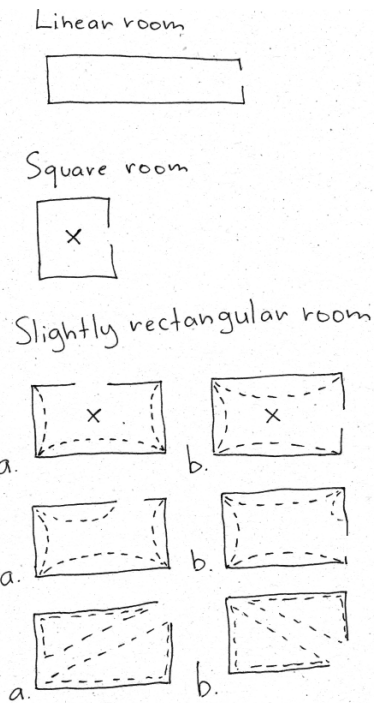 Linear room
Square room
X
Slightly rectangular room
X
X
a.
b.
a.
b.
a.
b.